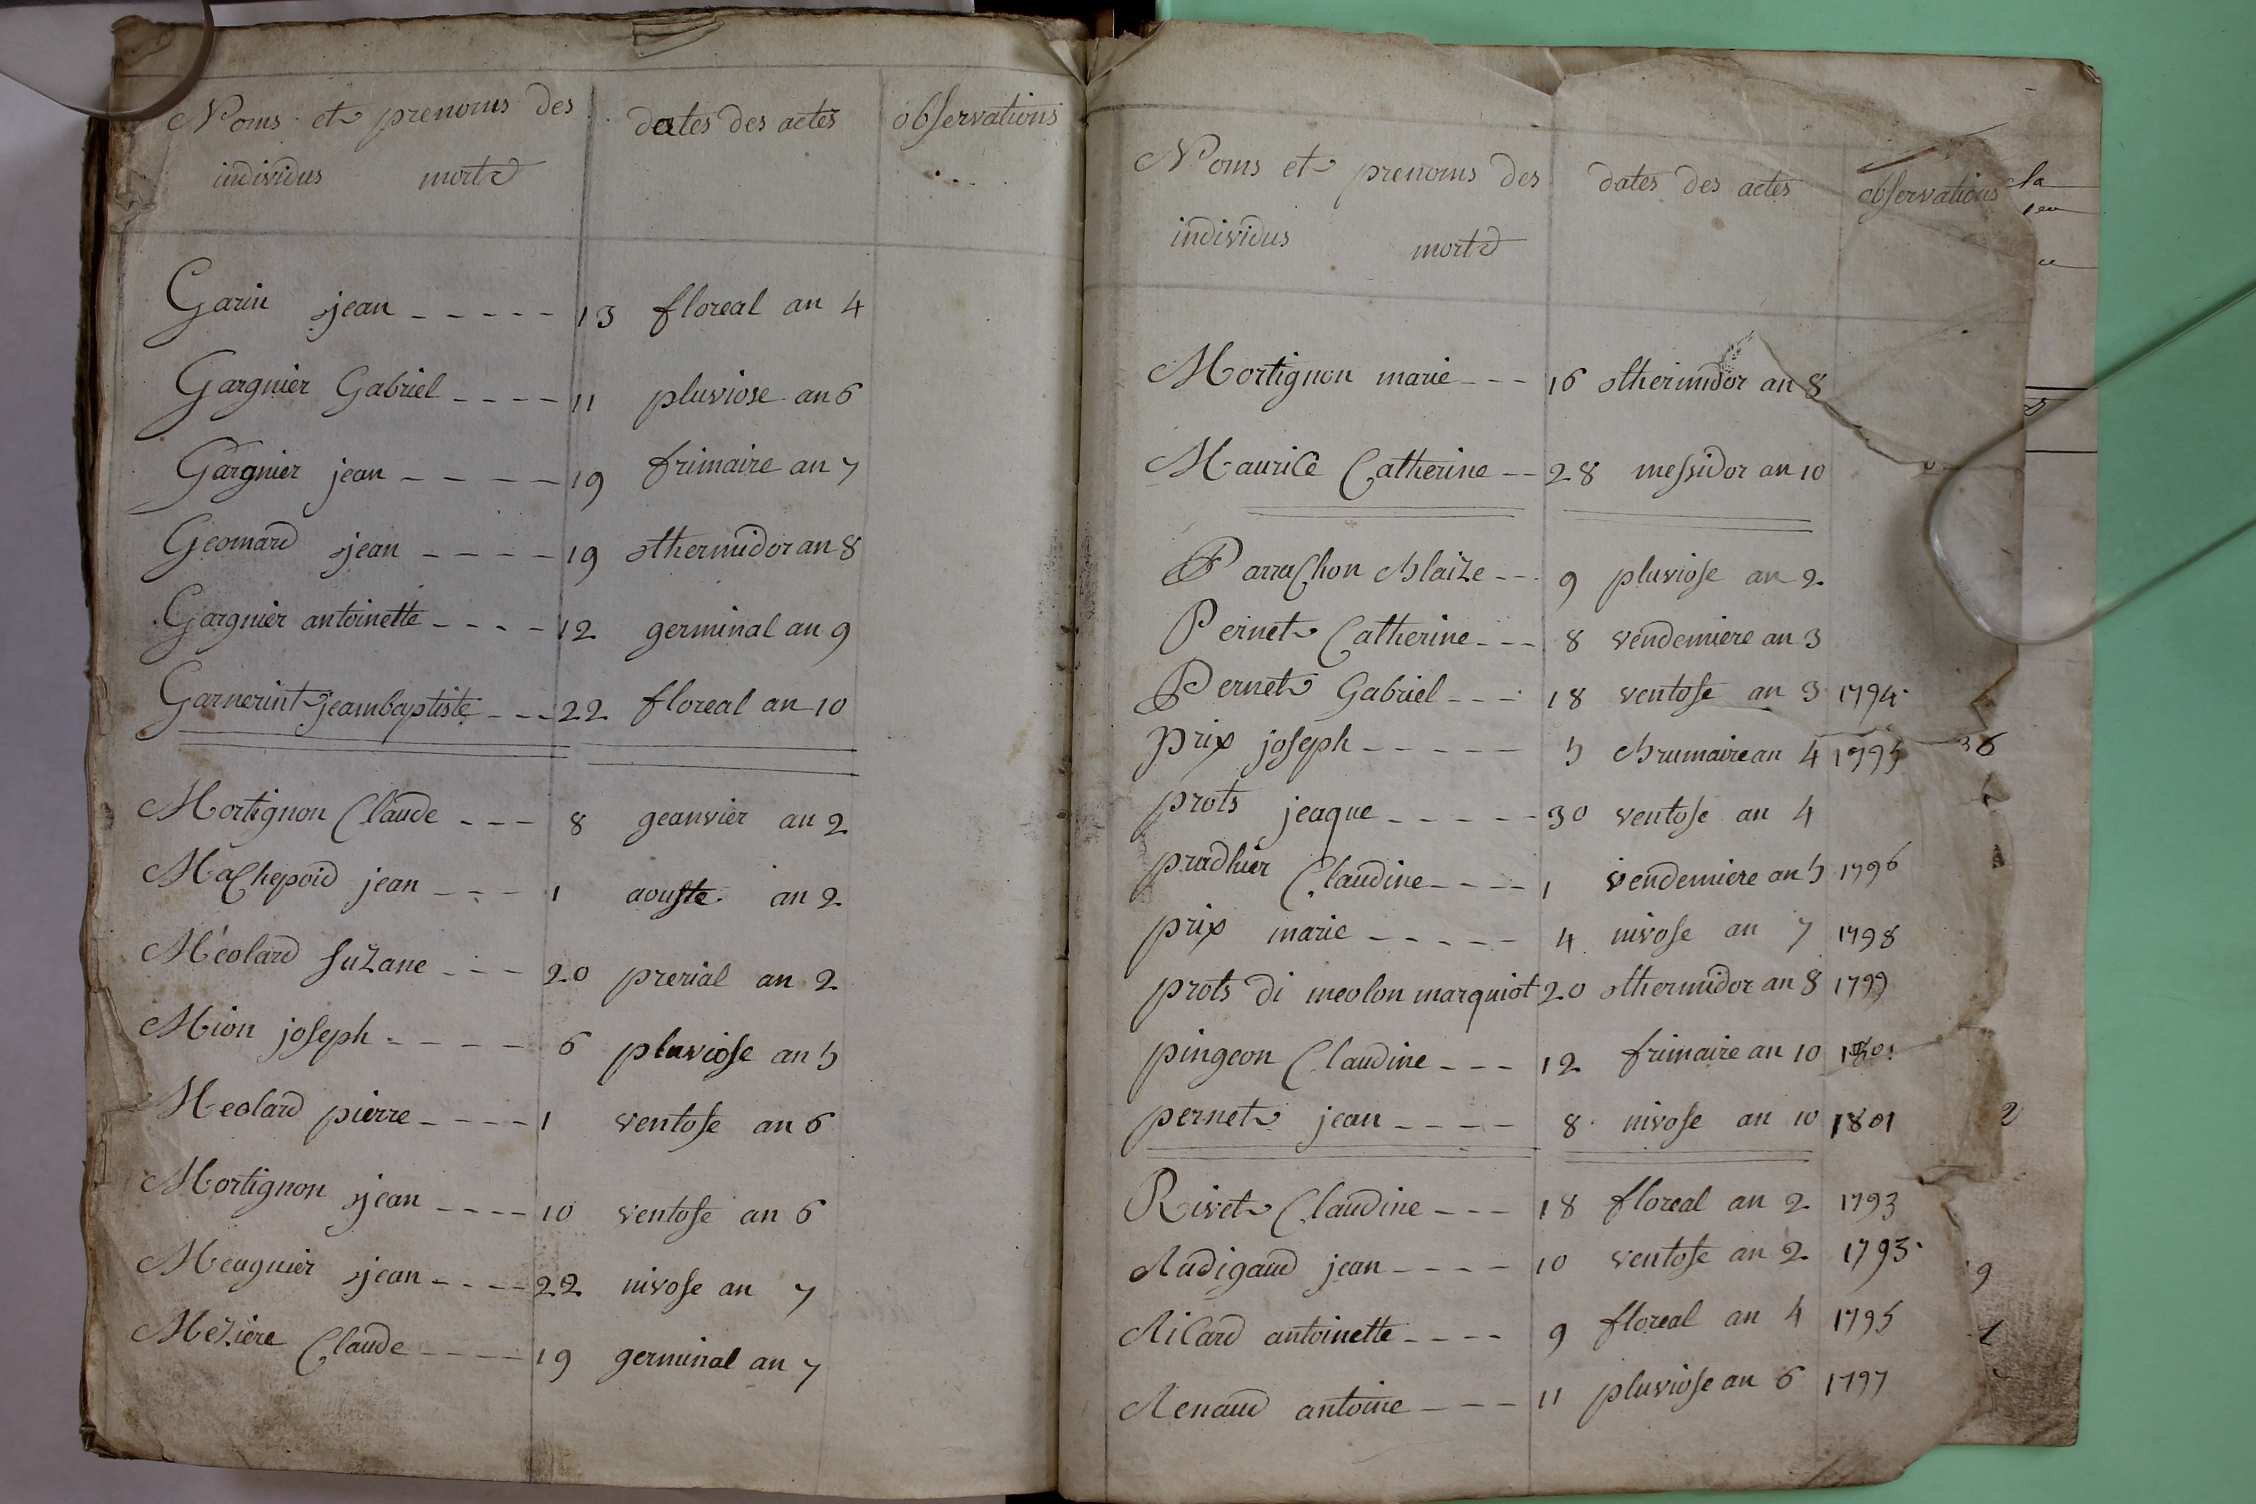 Noms et prenoms des dates des actes observations
individus morts
Garin jean ----- 13 floreal an 4
Gargnier Gabriel ---- 11 pluviose an 6
Gargnier jean ----- 19 frimaire an 7
Geomard jean ---- 19 thermidor an 8
Gargnier antoinette ---- 12 germinal an 9
Garnerint jeanbaptiste --- 22 floreal an 10
Mortignon Claude --- 8 geanvier an 2
Machepoid jean --- 1 aouste an 2
Méolard suzane --- 20 prerial an 2
Mion joseph ----- 6 pluviose an 5
Meolard pierre ---- 1 ventose an 6
Mortignon jean ---- 10 ventose an 6
Meugnier jean ---- 22 nivose an 7
Meziere Claude ---- 19 germinal an 7
Noms et prenoms des dates des actes observations
individus morts
Mortignon marie --- 16 thermidor an 8
Maurice Catherine -- 28 messidor an 10
Parrachon blaize -- 9 pluviose an 2
Pernet Catherine --- 8 vendemiere an 3
Pernet Gabriel --- 18 ventose an 3 1794
prix joseph ----- 5 brumaire an 4 1795
prots jeaque ----- 30 ventose an 4
pradhier Claudine ---- 1 vendemiere an 5 1796
prix marie ----- 4 nivose an 7 1798
prots di meolon marquiot 20 thermidor an 8 1799
pingeon Claudine --- 12 frimaire an 10
pernet jean ---- 8 nivose an 10 1801
Rivet Claudine --- 18 floreal an 2 1793
Radigaud jean ---- 10 ventose an 2 1793
Ricard antoinette ---- 9 floreal an 4 1795
Renaud antoine --- 11 pluviose an 6 1797